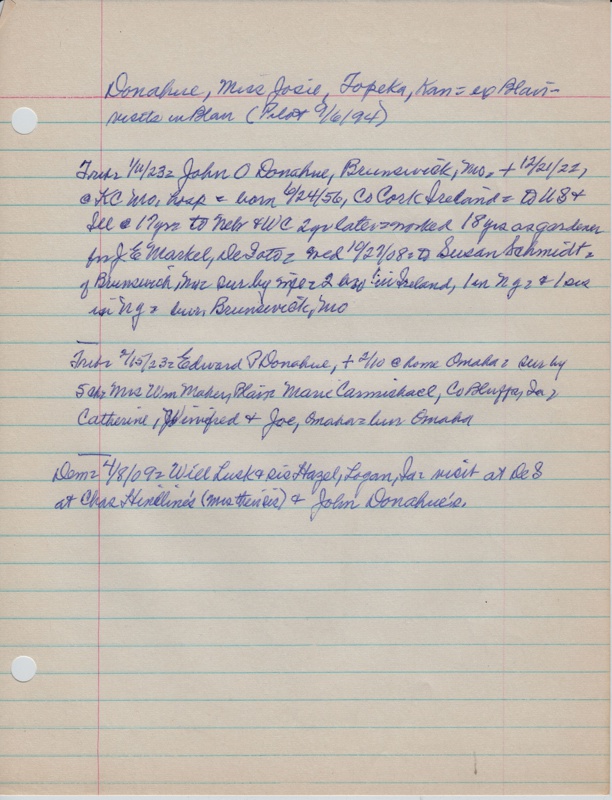 Donahue, Miss Josie, Topeka, Kan = ex Blair =
visits in Blair (Pilot 9/6/94)
Trib = 1/11/23 = John O Donahue, Brunswick, Mo. + 12/21/22,
@ KC Mo, hosp = born 6/24/56, Co Cork Ireland = to US &
Ill @ 17 yr = to Nebr & WC 2 yr later = worked 18 yrs as gardener
for J.E. Markel, DeSoto = wed 10/27/08 = to Susan Schmidt =
of Brunswick, Mo = sur by wife = 2 bro in Ireland, 1 in Ng = & 1 sis
in Ng = bur Brunswick, Mo
Trib = 2/15/23 = Edward P Donahue, + 2/10 @ home Omaha = sur by
5 ch = Mrs Wm Maher, Blair = Marie Carmichael, Co Bluffs, Ia =
Catherine, Winifred & Joe, Omaha = bur Omaha
Dem = 4/8/09 = Will Lusk & sis Hazel, Logan, Ia = visit at DeS
at Chas Hindline's (Mrs their sis) & John Donahue's.